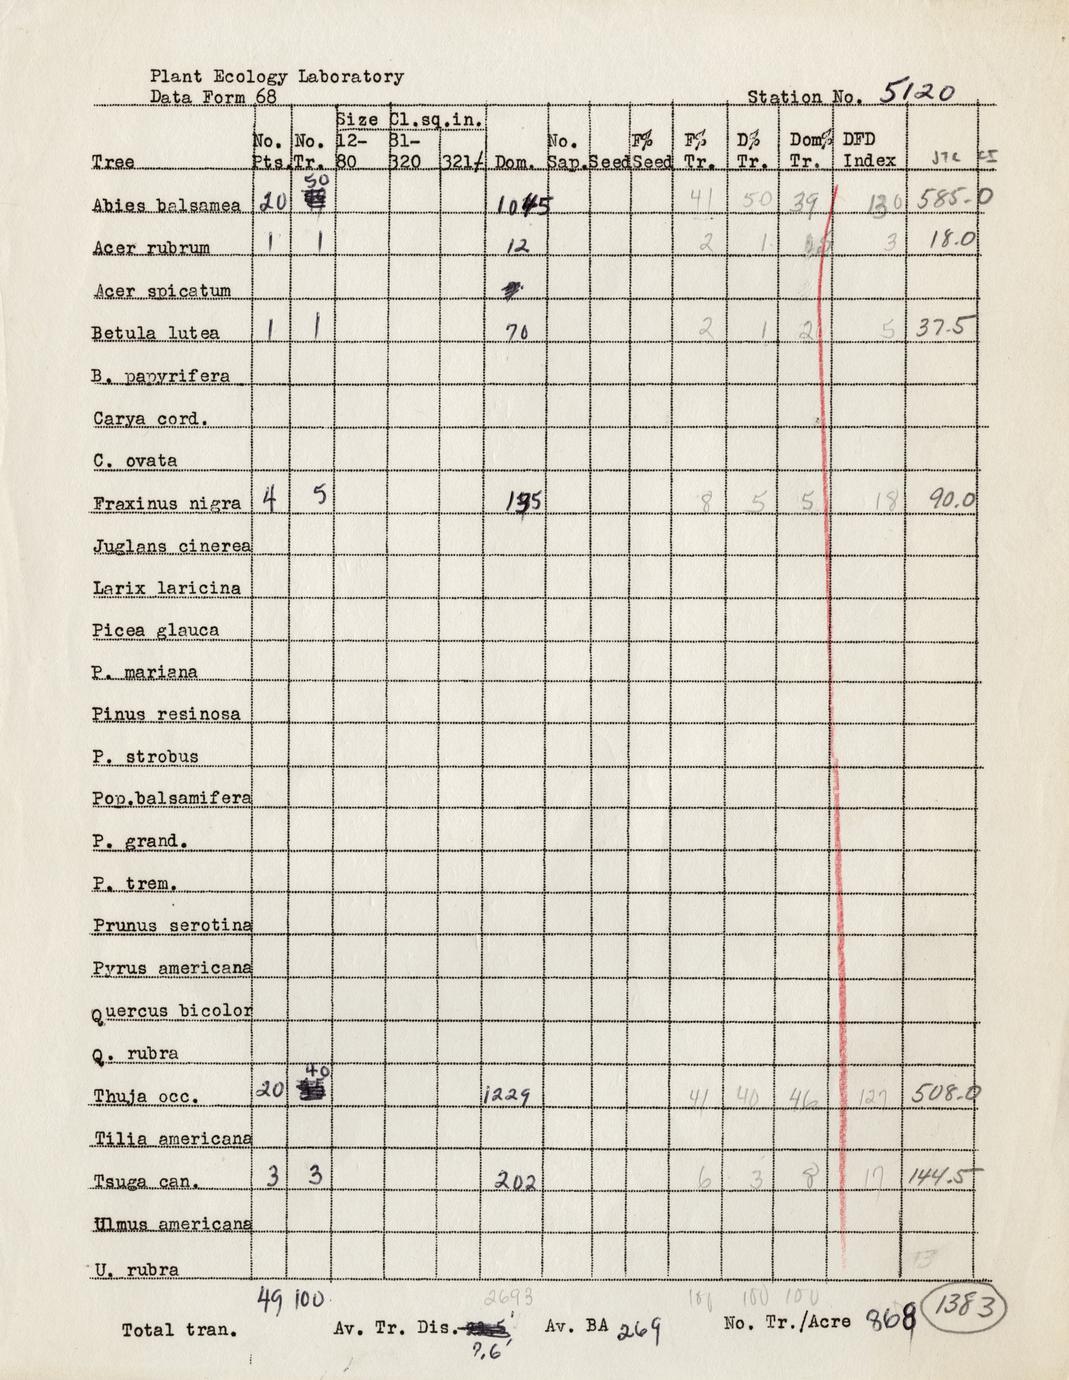 Plant Ecology Laboratory
Data Form 68
Station No. 5120
Size Cl.sq.in.
No. No. 12- 81- No. F% F% D% Dom% DFD
Tree Pts. Tr. 80 320 321/ Dom. Sap. Seed Seed Tr. Tr. Tr. Index
50
Abies balsamea 20 1045 41 50 39 130 585.0
Acer rubrum 1 1 12 2 1 3 18.0
Acer spicatum
Betula lutea 1 1 70 2 1 2 5 37.5
B. papyrifera
Carya cord.
C. ovata
Fraxinus nigra 4 5 135 8 5 5 18 90.0
Juglans cinerea
Larix laricina
Picea glauca
P. mariana
Pinus resinosa
P. strobus
Pop.balsamifera
P. grand.
P. trem.
Prunus serotina
Pyrus americana
Quercus bicolor
Q. rubra
40
Thuja occ. 20 1229 41 40 46 127 508.0
Tilia americana
Tsuga can. 3 3 202 6 3 8 17 144.5
Ulmus americana
U. rubra
49 100 2693 100 100
Total tran. Av. Tr. Dis. Av. BA 269 No. Tr./Acre 868 1383
7.6'